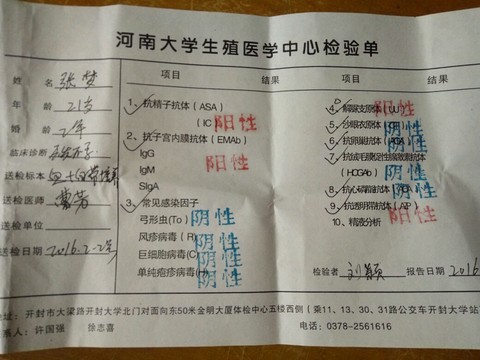 河南大学生殖医学中心检验单
姓 名 张梦
年 龄 21岁
婚 龄 2年
临床诊断
送检标本
送检医师
送检单位
送检日期 2016.2-2
项目 结果
1、抗精子抗体（ASA）
（IC 阳性
2、抗子宫内膜抗体（EMAb）
IgG 阳性
IgM
SIgA
3、常见感染因子
弓形虫(To) 阴性
风疹病毒（R） 阴性
巨细胞病毒(C) 阴性
单纯疱疹病毒 阴性
项目 结果
4、解脲支原体（UU） 阳性
5、沙眼衣原体 阴性
6、抗卵巢抗体 阴性
7、抗绒毛膜促性腺激素抗体
（HCGAb） 阴性
8、抗心磷脂抗体 阴性
9、抗透明带抗体 阳性
10、精液分析
检验者 刘颖 报告日期 2016
地址：开封市大梁路开封大学北门对面向东50米金明大厦体检中心五楼西侧（乘11、13、30、31路公交车开封大学站
系人：许国强 徐志喜 电话：0378-2561616